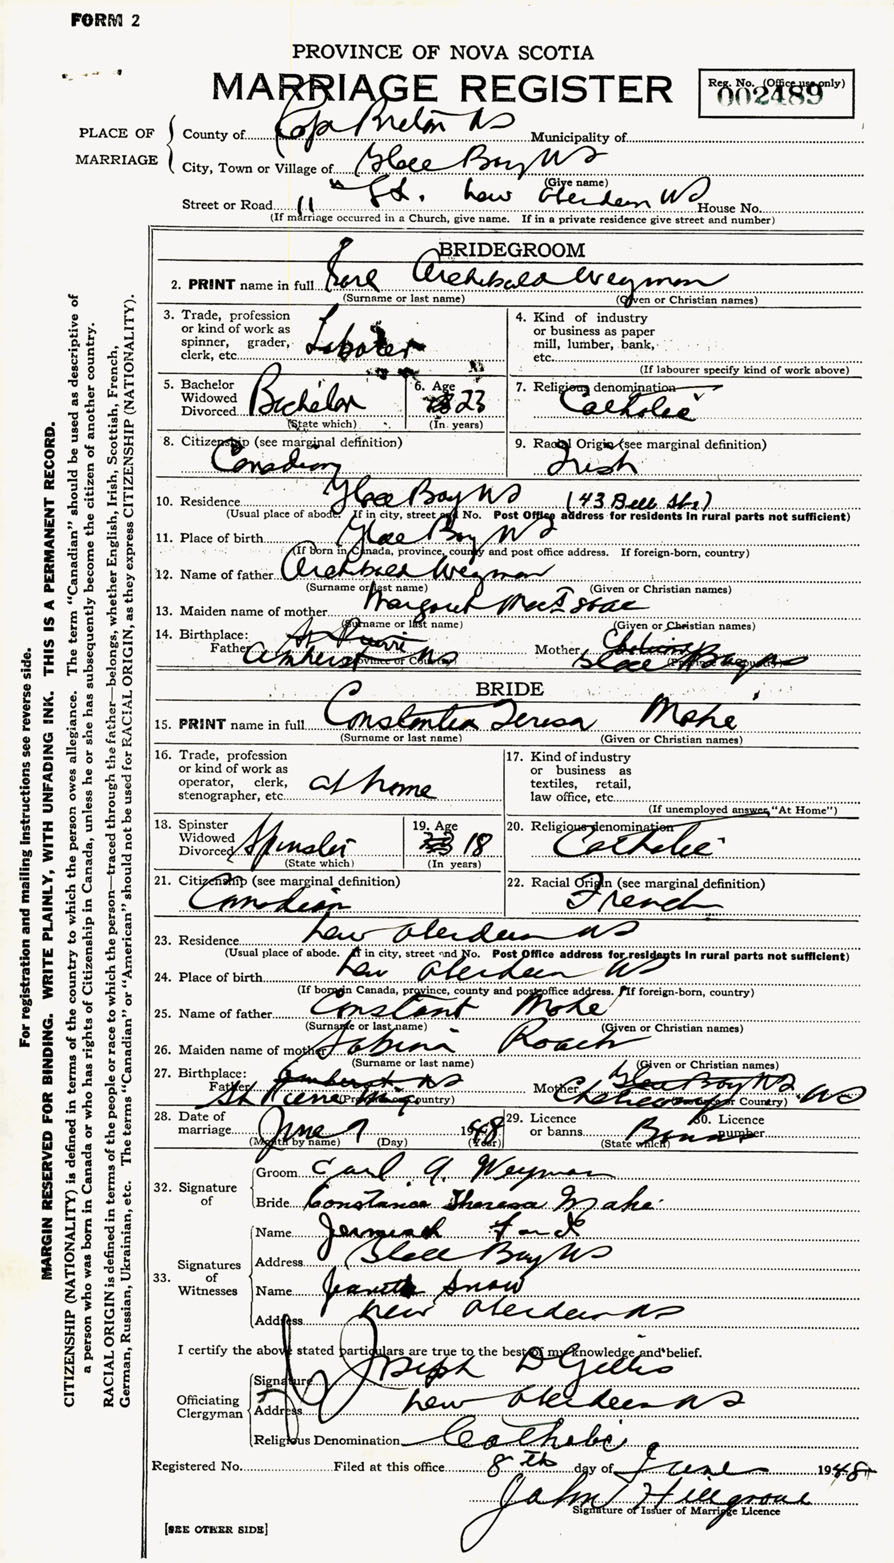 FORM 2
PROVINCE OF NOVA SCOTIA
MARRIAGE REGISTER
Reg. No. (Office use only)
002489
PLACE OF MARRIAGE
County of Cape Breton NS Municipality of
City, Town or Village of Glace Bay NS
(Give name)
Street or Road 11 St. New Aberdeen NS House No.
(If marriage occurred in a Church, give name. If in a private residence give street and number)
BRIDEGROOM
2. PRINT name in full Karl Archibald Weyman
(Surname or last name) (Given or Christian names)
3. Trade, profession or kind of work as spinner, grader, clerk, etc. Laborer
4. Kind of industry or business as paper mill, lumber, bank, etc.
(If labourer specify kind of work above)
5. Bachelor Widowed Divorced Bachelor
(State which)
6. Age 23
(In years)
7. Religious denomination Catholic
8. Citizenship (see marginal definition) Canadian
9. Racial Origin (see marginal definition) Irish
10. Residence Glace Bay NS (43 Bell St.)
(Usual place of abode. If in city, street and No. Post Office address for residents in rural parts not sufficient)
11. Place of birth Glace Bay NS
(If born in Canada, province, county and post office address. If foreign-born, country)
12. Name of father Archibald Weyman
(Surname or last name) (Given or Christian names)
13. Maiden name of mother Margaret MacIsaac
(Surname or last name) (Given or Christian names)
14. Birthplace:
Father St Pierre Amherst NS Mother Glace Bay NS
BRIDE
15. PRINT name in full Constantia Teresa Mahé
(Surname or last name) (Given or Christian names)
16. Trade, profession or kind of work as operator, clerk, stenographer, etc. at home
17. Kind of industry or business as textiles, retail, law office, etc.
(If unemployed answer "At Home")
18. Spinster Widowed Divorced Spinster
(State which)
19. Age 18
(In years)
20. Religious denomination Catholic
21. Citizenship (see marginal definition) Canadian
22. Racial Origin (see marginal definition) French
23. Residence New Aberdeen NS
(Usual place of abode. If in city, street and No. Post Office address for residents in rural parts not sufficient)
24. Place of birth New Aberdeen NS
(If born in Canada, province, county and post office address. If foreign-born, country)
25. Name of father Constant Mahe
(Surname or last name) (Given or Christian names)
26. Maiden name of mother Sabina Roach
(Surname or last name) (Given or Christian names)
27. Birthplace:
Father Amherst NS St Pierre Miq Mother Glace Bay NS Cheticamp NS
28. Date of marriage June 7 1948
(Month by name) (Day) (Year)
29. Licence or banns Banns
(State which)
30. Licence number
32. Signature of
Groom Carl A. Weyman
Bride Constance Theresa Mahé
33. Signatures of Witnesses
Name Jeremiah
Address Glace Bay NS
Name Jeanette Snow
Address New Aberdeen NS
I certify the above stated particulars are true to the best of my knowledge and belief.
Officiating Clergyman
Signature Joseph D Gillis
Address New Aberdeen NS
Religious Denomination Catholic
Registered No. Filed at this office 8th day of June 1948
John Hillgrove
Signature of Issuer of Marriage Licence
[SEE OTHER SIDE]
For registration and mailing instructions see reverse side.
MARGIN RESERVED FOR BINDING. WRITE PLAINLY, WITH UNFADING INK. THIS IS A PERMANENT RECORD.
CITIZENSHIP (NATIONALITY) is defined in terms of the country to which the person owes allegiance. The term "Canadian" should be used as descriptive of
a person who was born in Canada or who has rights of Citizenship in Canada, unless he or she has subsequently become the citizen of another country.
RACIAL ORIGIN is defined in terms of the people or race to which the person—traced through the father—belongs, whether English, Irish, Scottish, French,
German, Russian, Ukrainian, etc. The terms "Canadian" or "American" should not be used for RACIAL ORIGIN, as they express CITIZENSHIP (NATIONALITY).